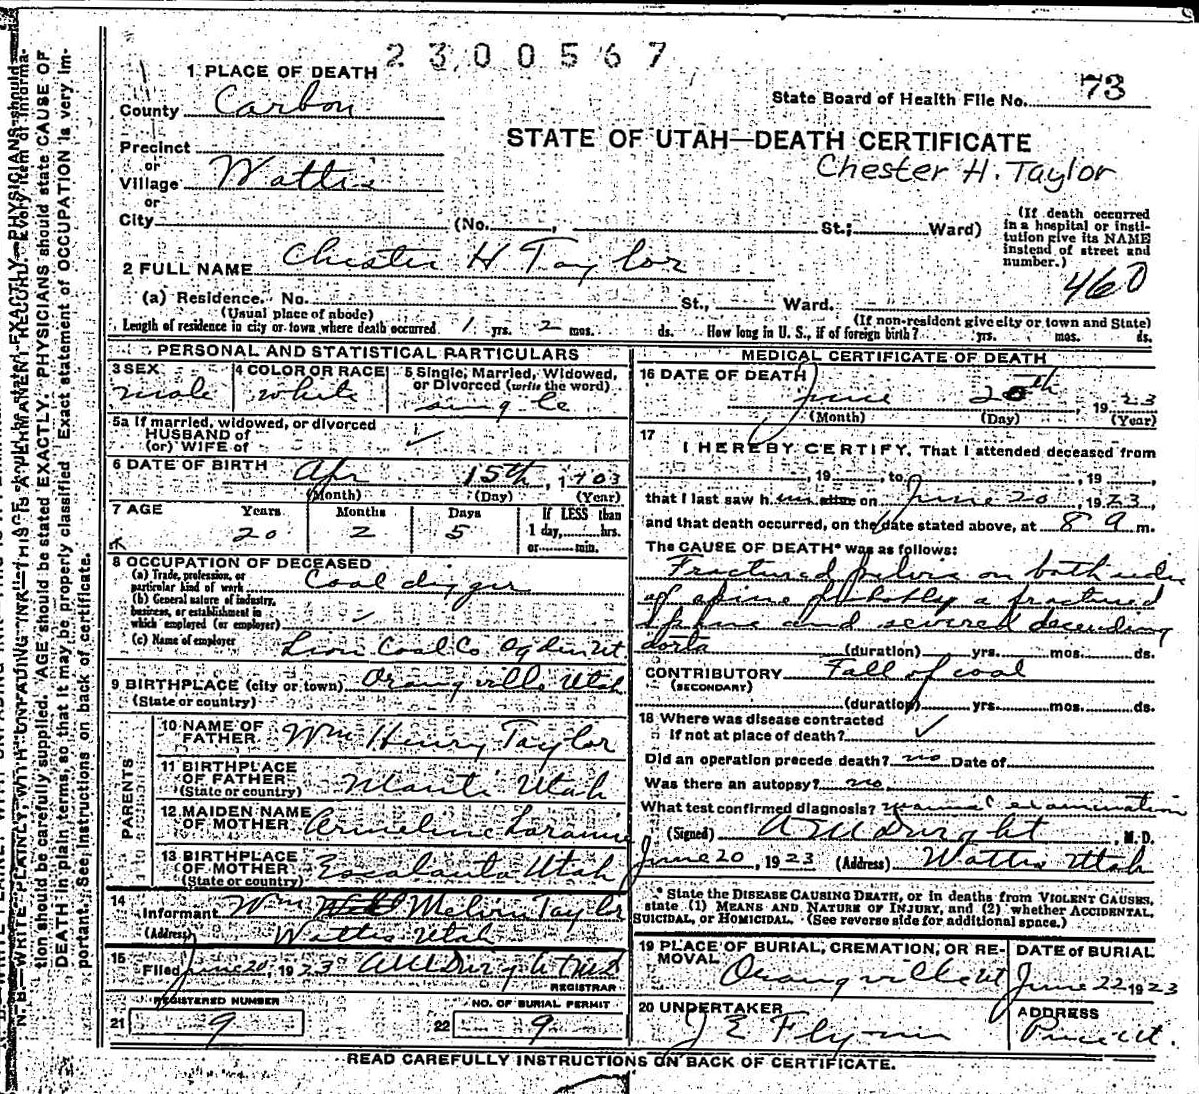 2300567
1 PLACE OF DEATH
County Carbon
State Board of Health File No. 73
STATE OF UTAH—DEATH CERTIFICATE
Chester H. Taylor
Precinct
or
Village Wattis
or
City (No. , St.; Ward)
(If death occurred in a hospital or institution give its NAME instead of street and number.)
2 FULL NAME Chester H Taylor
460
(a) Residence. No. St., Ward.
(Usual place of abode) (If non-resident give city or town and State)
Length of residence in city or town where death occurred 1 yrs. 2 mos. ds. How long in U. S., if of foreign birth? yrs. mos. ds.
PERSONAL AND STATISTICAL PARTICULARS
3 SEX male
4 COLOR OR RACE white
5 Single, Married, Widowed, or Divorced (write the word) single
5a If married, widowed, or divorced
HUSBAND of
(or) WIFE of
6 DATE OF BIRTH Apr 15th, 1903
(Month) (Day) (Year)
7 AGE Years Months Days If LESS than
20 2 5 1 day, hrs.
or min.
8 OCCUPATION OF DECEASED
(a) Trade, profession, or particular kind of work Coal digger
(b) General nature of industry, business, or establishment in which employed (or employer)
(c) Name of employer Lion Coal Co Ogden Ut
9 BIRTHPLACE (city or town) Orangville Utah
(State or country)
PARENTS
10 NAME OF FATHER Wm Henry Taylor
11 BIRTHPLACE OF FATHER Manti Utah
(State or country)
12 MAIDEN NAME OF MOTHER Armeline Laramie
13 BIRTHPLACE OF MOTHER Escalanta Utah
(State or country)
14 Informant Wm Melvin Taylor
(Address) Wattis Utah
15 Filed June 20, 1923
REGISTRAR
REGISTERED NUMBER NO. OF BURIAL PERMIT
21 9 22 9
MEDICAL CERTIFICATE OF DEATH
16 DATE OF DEATH
June 20th, 1923
(Month) (Day) (Year)
17 I HEREBY CERTIFY, That I attended deceased from
, 19 , to , 19 ,
that I last saw h im alive on June 20, 1923,
and that death occurred, on the date stated above, at 8 9 m.
The CAUSE OF DEATH* was as follows:
Fractured pelvis on both sides
of spine probably a fractured
spine and severed decending
aorta
(duration) yrs. mos. ds.
CONTRIBUTORY Fall of coal
(SECONDARY)
(duration) yrs. mos. ds.
18 Where was disease contracted
if not at place of death?
Did an operation precede death? no Date of
Was there an autopsy? no
What test confirmed diagnosis? manual examination
(Signed) A W Dwight, M. D.
June 20, 1923 (Address) Wattis Utah
* State the DISEASE CAUSING DEATH, or in deaths from VIOLENT CAUSES, state (1) MEANS AND NATURE OF INJURY, and (2) whether ACCIDENTAL, SUICIDAL, or HOMICIDAL. (See reverse side for additional space.)
19 PLACE OF BURIAL, CREMATION, OR REMOVAL Orangville Ut
DATE OF BURIAL June 22 1923
20 UNDERTAKER J E Flynn
ADDRESS Price Ut.
READ CAREFULLY INSTRUCTIONS ON BACK OF CERTIFICATE.
tion should be carefully supplied. AGE should be stated EXACTLY. PHYSICIANS should state CAUSE OF
DEATH in plain terms, so that it may be properly classified. Exact statement of OCCUPATION is very im-
portant. See instructions on back of certificate.